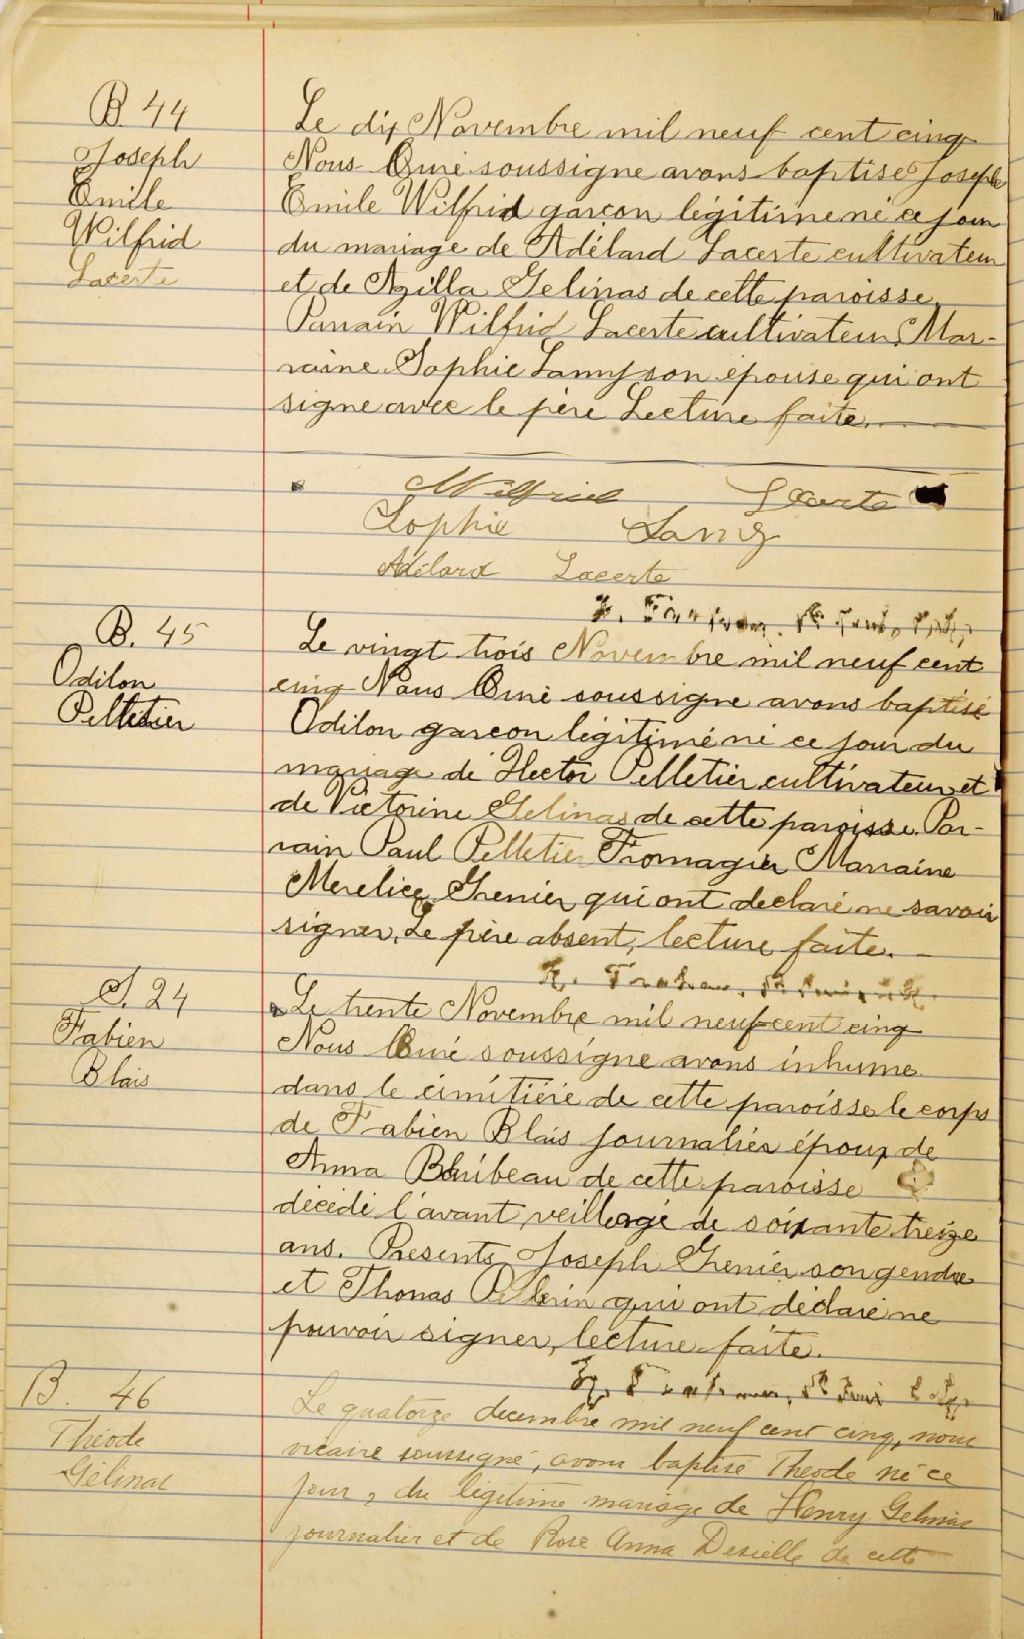 B. 44
Joseph
Emille
Wilfrid
Lacerte
Le dix Novembre mil neuf cent cinq
Nous Curé soussigne avons baptise Joseph
Emile Wilfrid garcon légitime né ce jour
du mariage de Adélard Lacerte cultivateur
et de Azilla Gelinas de cette paroisse.
Parrain Wilfrid Lacerte cultivateur, Mar-
raine Sophie Lamy son épouse qui ont
signe avec le père Lecture faite.
Wilfrid Lacerte
Sophie Lamy
Adélard Lacerte
B. 45
Odilon
Pelletier
Le vingt trois Novembre mil neuf cent
cinq Nous Curé soussigne avons baptisé
Odilon garcon légitimé né ce jour du
mariage de Hector Pelletier cultivateur et
de Victorine Gelinas de cette paroisse. Par-
rain Paul Pelletier Fromagier Marraine
Merelice Grenier qui ont declaré ne savoir
signer, Le père absent, lecture faite.
S. 24
Fabien
Blais
Le trente Novembre mil neuf cent cinq
Nous Curé soussigne avons inhume
dans le cimitiére de cette paroisse le corps
de Fabien Blais journalier époux de
Anna Baribeau de cette paroisse
décédé l'avant veille agé de soixante treize
ans. Presents Joseph Grenier son gendre
et Thomas Pellerin qui ont déclaré ne
pouvoir signer, lecture faite.
B. 46
Théode
Gélinas
Le quatorze decembre mil neuf cent cinq, nous
vicaire soussigné, avons baptisé Théode né ce
jour, du légitime mariage de Henry Gelinas
journalier et de Rose Anna Desielle de cette